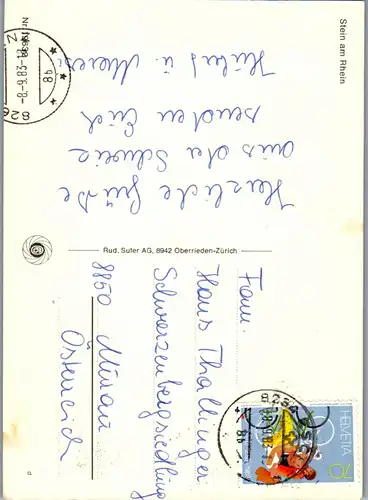 Stein am Rhein
Herzliche Grüße
aus der Schweiz
senden Euch
Hubert u.
Rud. Suter AG, 8942 Oberrieden-Zürich
Fam.
Hans Thallinger
Schwarzenbergsiedlung
8850 Murau
Österreich
HELVETIA